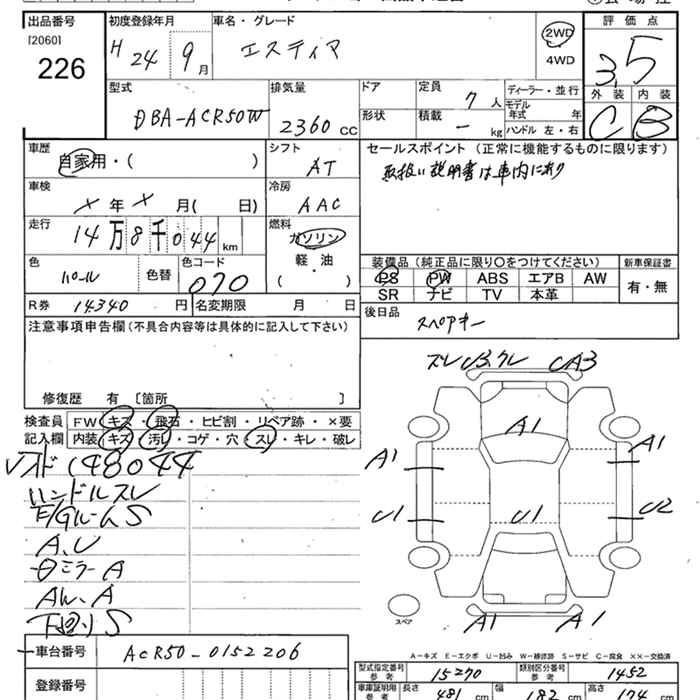 出品番号 [2060] 226
初度登録年月 H 24 9月
車名・グレード エスティマ
2WD 4WD
評価点 3.5
外装 C 内装 B
型式 DBA-ACR50W
排気量 2360 CC
ドア 形状
定員 7人
積載 － kg
ディーラー・並行
モデル年式 年
ハンドル 左・右
車歴 自家用・( )
シフト AT
セールスポイント (正常に機能するものに限ります)
取扱い説明書は車内にあり
車検 X年X月( 日)
冷房 AAC
走行 14万8千044 km
燃料 ガソリン 軽・油 ( )
色 パール 色替
色コード 070
装備品 (純正品に限り○をつけてください)
PS PW ABS エアB AW
SR ナビ TV 本革
新車保証書 有・無
R券 14340円
名変期限 月 日
後日品 スペアキー
注意事項申告欄(不具合内容等は具体的に記入して下さい)
修復歴 有 [箇所 ]
検査員記入欄
FW キズ・飛石・ヒビ割・リペア跡・×要
内装 キズ・汚レ・コゲ・穴・スレ・キレ・破レ
148044
ハンドルスレ
F/Gルーム S
A、U
ミラー A
AW、A
下廻り S
スレ U3,クレ CA3
A1
A1 A1
U1 U1 U2
A1 A1
スペア
A-キズ E-エクボ U-凹み W-補修跡 S-サビ C-腐食 XX-交換済
車台番号 ACR50-0152206
登録番号
型式指定番号 参考 15270
類別区分番号 参考 1452
車庫証明用 参考 長さ 481 cm 幅 182 cm 高さ 174 cm